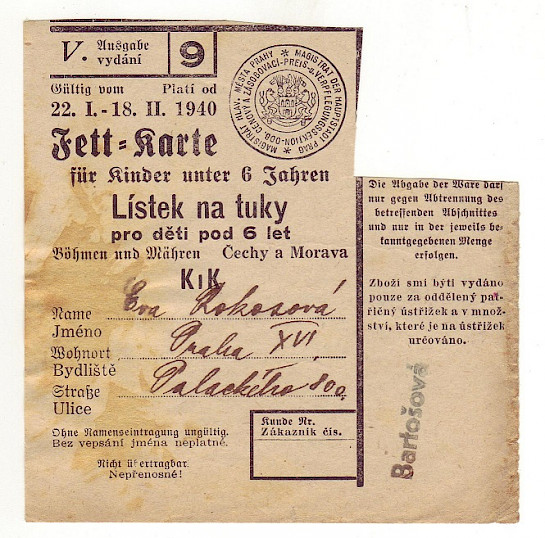 V. Ausgabe
vydání
9
Gültig vom Platí od
22. I.-18. II. 1940
MAGISTRÁT HLAV. MĚSTA PRAHY * MAGISTRAT DER HAUPTSTADT PRAG *
ODD. CENOVÝ A ZÁSOBOVACÍ-PREIS-U. VERPFLEGUNGSSEKTION
Fett-Karte
für Kinder unter 6 Jahren
Lístek na tuky
pro děti pod 6 let
Böhmen und Mähren Čechy a Morava
KiK
Name Eva
Jméno
Wohnort Praha XVI
Bydliště
Straße Palackého
Ulice
Ohne Namenseintragung ungültig.
Bez vepsání jména neplatné.
Nicht übertragbar.
Nepřenosné!
Kunde Nr.
Zákazník čís.
Die Abgabe der Ware darf
nur gegen Abtrennung des
betreffenden Abschnittes
und nur in der jeweils be-
kanntgegebenen Menge
erfolgen.
Zboží smí býti vydáno
pouze za oddělený pat-
řičný ústřižek a v množ-
ství, které je na ústřižek
určováno.
Bartošová